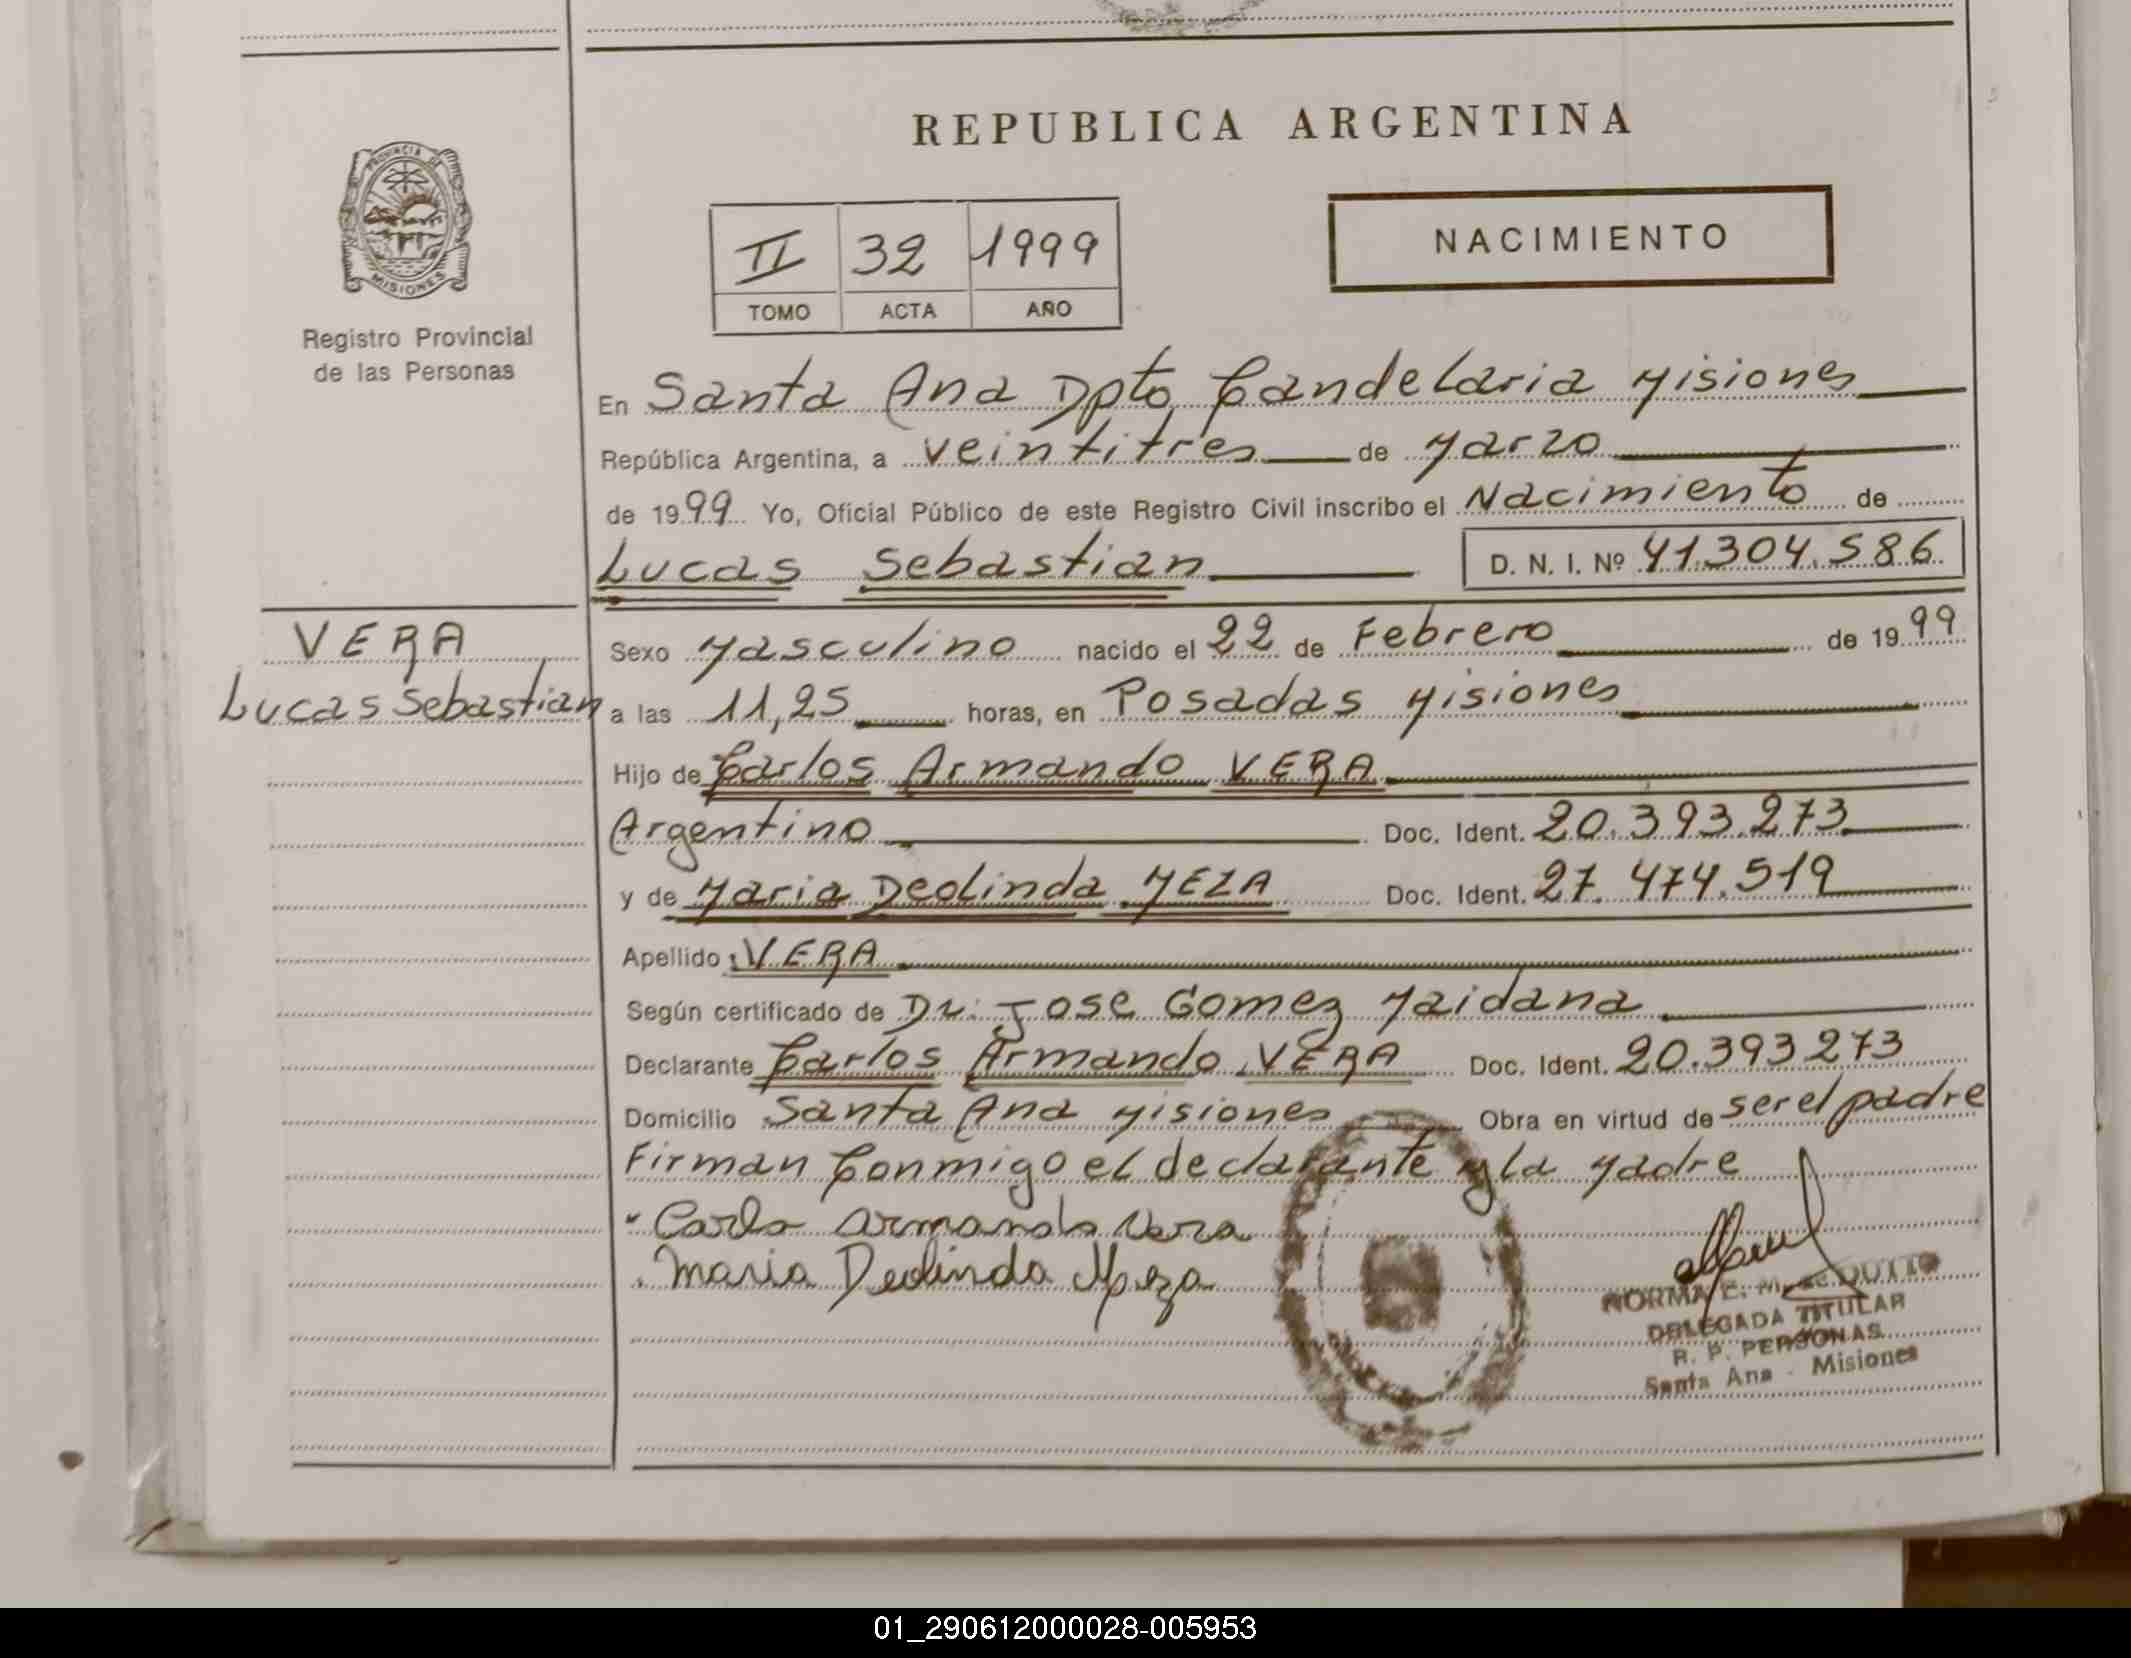 REPUBLICA ARGENTINA
PROVINCIA DE
MISIONES
Registro Provincial
de las Personas
II 32 1999
TOMO ACTA AÑO
NACIMIENTO
En Santa Ana Dpto Candelaria Misiones
República Argentina, a veintitres de Marzo
de 1999 Yo, Oficial Público de este Registro Civil inscribo el Nacimiento de
Lucas Sebastian D. N. I. Nº 41.304.586
VERA
Lucas Sebastian
Sexo Masculino nacido el 22 de Febrero de 1999
a las 11,25 horas, en Posadas Misiones
Hijo de Carlos Armando VERA
Argentino Doc. Ident. 20.393.273
y de Maria Deolinda MEZA Doc. Ident. 27.474.519
Apellido: VERA
Según certificado de Dr. Jose Gomez Maidana
Declarante Carlos Armando VERA Doc. Ident. 20.393273
Domicilio Santa Ana Misiones Obra en virtud de ser el padre
Firman Conmigo el declarante y la Madre
Carlos Armando Vera
Maria Deolinda Meza
NORMA E. M. de DUTTO
DELEGADA TITULAR
R. P. PERSONAS
Santa Ana - Misiones
01_290612000028-005953